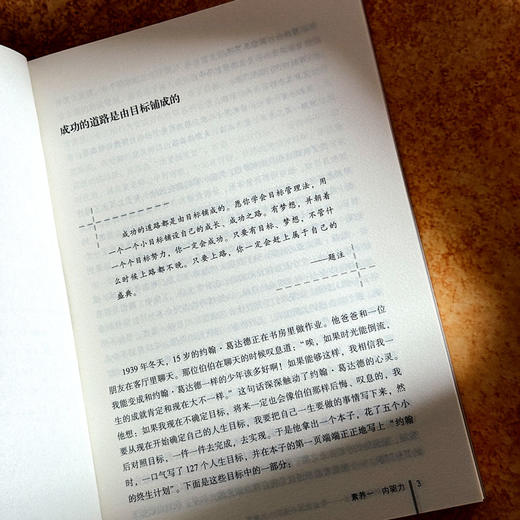 成功的道路是由目标铺成的
成功的道路都是由目标铺成的。愿你学会目标管理法，用
一个一个小目标铺设自己的成长、成功之路。有梦想，并朝着
一个个目标努力，你一定会成功。只要有目标、梦想，不管什
么时候上路都不晚。只要上路，你一定会赶上属于自己的
盛典。
——题注
1939 年冬天，15 岁的约翰·葛达德正在书房里做作业。他爸爸和一位
朋友在客厅里聊天。那位伯伯在聊天的时候叹息道：“唉，如果时光能倒流，
我能变成和约翰·葛达德一样的少年该多好啊！如果能够这样，我相信我一
生的成就肯定和现在大不一样。”这句话深深触动了约翰·葛达德的心灵。
他想：如果我现在不确定目标，将来一定也会像伯伯那样后悔、叹息的，我
要从现在开始确定自己的人生目标，我要把自己一生要做的事情写下来，然
后对照目标，一件一件去完成，去实现。于是他拿出一个本子，花了五个小
时，一口气写了 127 个人生目标，并在本子的第一页端端正正地写上“约翰
的终生计划”。下面是这些目标中的一部分：
素养一 内驱力 3